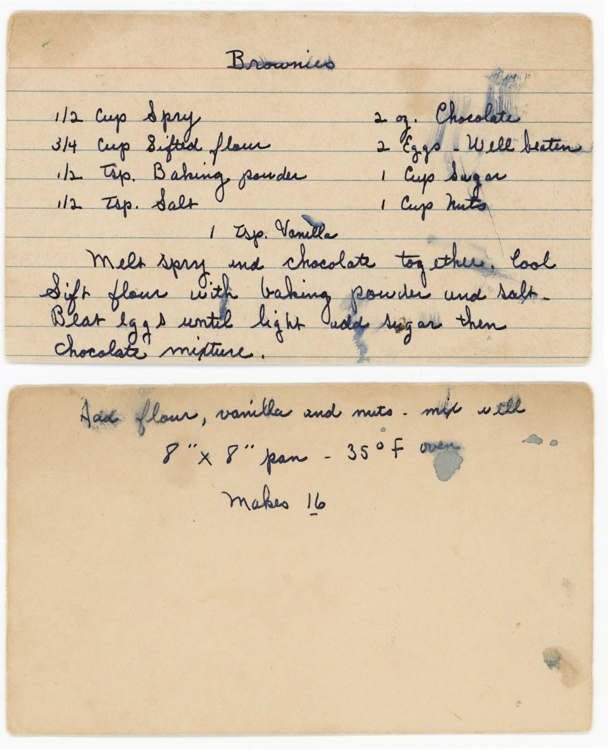 Brownies
1/2 Cup Spry 2 oz. Chocolate
3/4 Cup Sifted flour 2 Eggs - Well beaten
1/2 Tsp. Baking powder 1 Cup Sugar
1/2 Tsp. Salt 1 Cup Nuts
1 Tsp. Vanilla
Melt spry and chocolate together. Cool
Sift flour with baking powder and salt.
Beat eggs until light add sugar then
chocolate mixture.
Add flour, vanilla and nuts - mix well
8" x 8" pan - 35° F oven
Makes 16